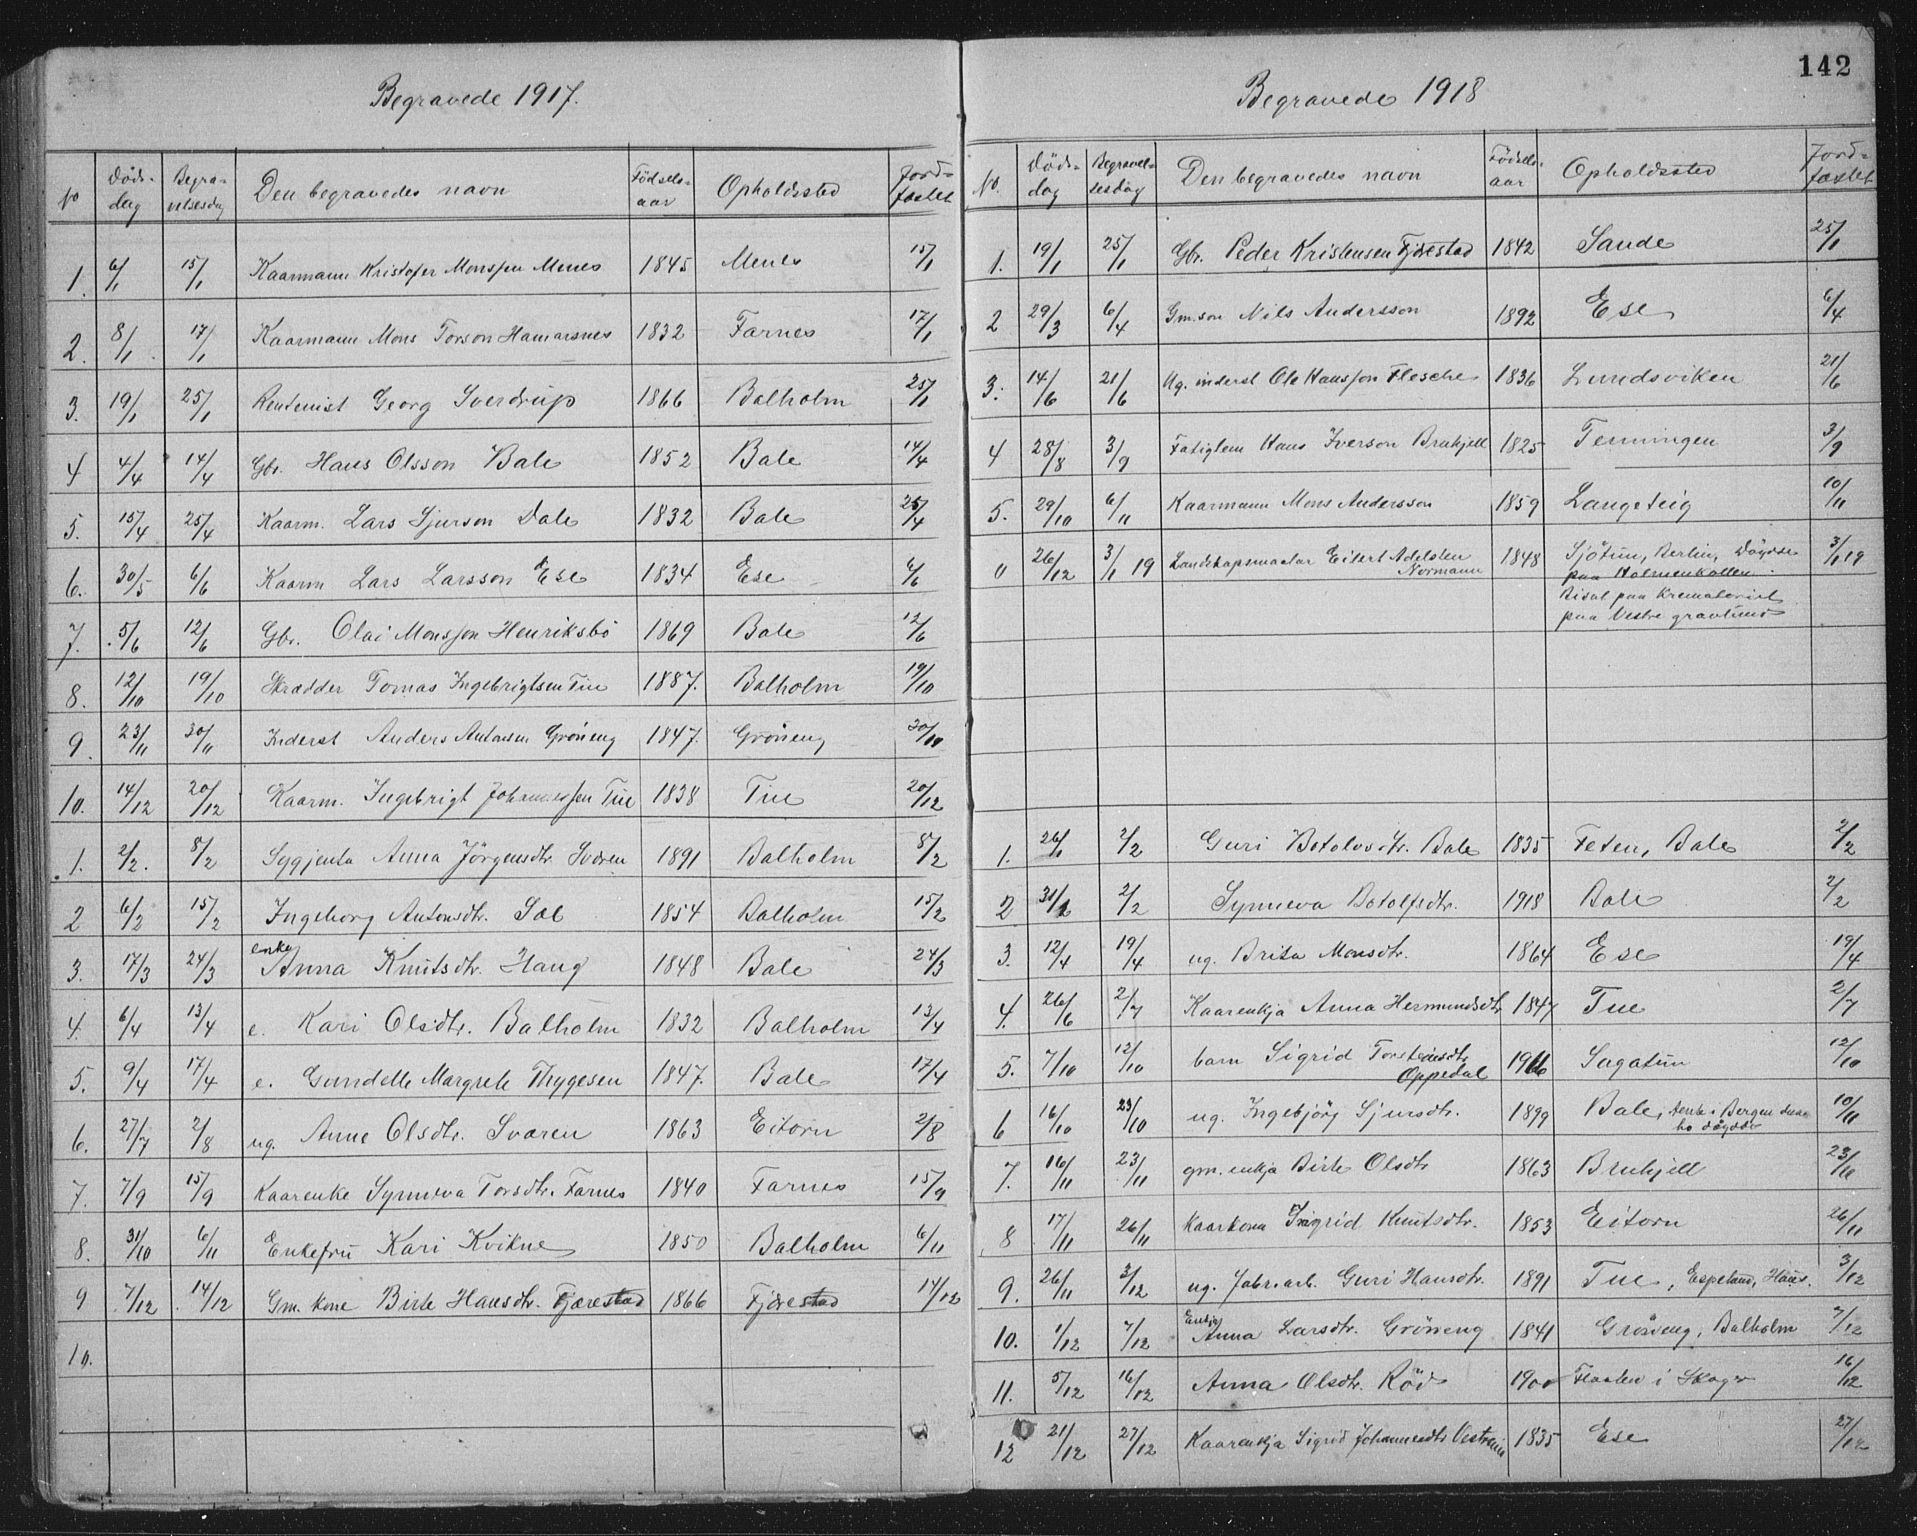 Begravede 1917.
No Døds-dag Begra-velsesdag Den begravedes navn Fødsels-aar Opholdssted Jord-fæstet
1. 6/1 15/1 Kaarmann Kristofer Monssen Menes 1845 Menes 15/1
2. 8/1 17/1 Kaarmann Mons Torson Hamarsnes 1832 Farnes 17/1
3. 19/1 25/1 Rentenist Georg Sverdrup 1866 Balholm 25/1
4 4/4 14/4 Gbr. Hans Olsson Bale 1852 Bale 14/4
5. 15/4 25/4 Kaarm. Lars Sjurson Dale 1832 Bale 25/4
6. 30/5 6/6 Kaarm Lars Larsson Ese 1834 Ese 6/6
7. 5/6 12/6 Gbr. Olai Monsson Henriksbö 1869 Bale 12/6
8. 12/10 19/10 Skrædder Tomas Ingebrigtsen Tue 1887. Balholm 19/10
9. 23/11 30/11 Inderst Anders Antonsen Gröneng 1847. Gröneng
10. 14/12 20/12 Kaarm. Ingebrigt Johannessen Tue 1838 Tue 20/12
1. 2/2. 8/2 Sygjenta Anna Jörgensdtr. Sværen 1891 Balholm 8/2
2 6/2 15/2 Ingeborg Antonsdtr. Sæl 1854 Balholm 15/2
3. 17/3 24/3 enke Anna Knutsdtr. Haug 1848 Bale 24/3
4. 6/4 13/4 e. Kari Olsdtr. Balholm 1832 Balholm 13/4
5. 9/4 17/4 e. Gundelle Margrete Thygesen 1847. Bale 17/4
6. 27/7 2/8 ug. Anne Olsdtr. Sværen 1863 Eitorn 2/8
7. 7/9 15/9 Kaarenke Synneva Torsdtr. Farnes 1840 Farnes 15/9
8. 31/10 6/11 Enkefru Kari Kvikne 1850 Balholm 6/11
9 7/12 14/12 Gm. kone Birte Hansdtr. Fjærestad 1866 Fjærestad 14/12
10.
142
Begravede 1918
No. Døds-dag Begravel-sesdag Den begravedes navn Fødsels-aar Opholdssted Jord-fæstet
1. 19/1 25/1 Gbr. Peder Kristensen Fjærestad 1842 Sande 25/1
2 29/3 6/4 Gm.son Nils Andersson 1892 Ese 6/4
3. 14/6 21/6 Ug. inderst Ole Hansson Flesche 1836 Lundsviken 21/6
4 28/8 3/9 Fatiglem Hans Iverson Brukjell 1825 Tenningen 3/9
5. 29/10 6/11 Kaarmann Mons Andersson 1859 Langeteig 10/11
0 26/12 3/1 19 Landskapsmaalar Eilert Adelsten Normann 1848 Sjötun, Berlin, Döydde 3/1 19
paa Holmenkollen.
Bisat paa Krematoriet
paa Vestre gravlund
1. 26/1 2/2 Guri Botolvsdtr. Bale 1835 Feten, Bale 2/2
2 31/1 2/2 Synneva Botolfsdtr. 1918 Bale 2/2
3. 12/4 19/4 ug. Brita Monsdtr. 1864 Ese 19/4
4. 26/6 2/7 Kaarenkja Anna Hermundsdtr 1847 Tue 2/7
5. 7/10 12/10 barn Sigrid Torsteinsdtr Oppedal 1916 Sagatun 12/10
6 16/10 23/10 ug. Ingebjörg Sjursdtr. 1899 Bale, i Bergen 10/11
7. 16/11 23/11 gm. enkja Birte Olsdtr 1863 Brukjell 23/11
8 17/11 26/11 Kaarkona Ingrid Knutsdtr. 1853 Eitorn 26/11
9. 26/11 3/12 ug. fabr.arb. Guri Hansdtr. 1891 Tue, Espeland, Haus. 3/12
10. 1/12 7/12 Enkja Anna Larsdtr. Gröneng 1841 Gröneng, Balholm 7/12
11. 5/12 16/12 Anna Olsdtr. Röd 1900 Flaaten i Skoger 16/12
12 21/12 27/12 Kaarenkja Sigrid Johannesdtr Vestreim 1835 Ese 27/12